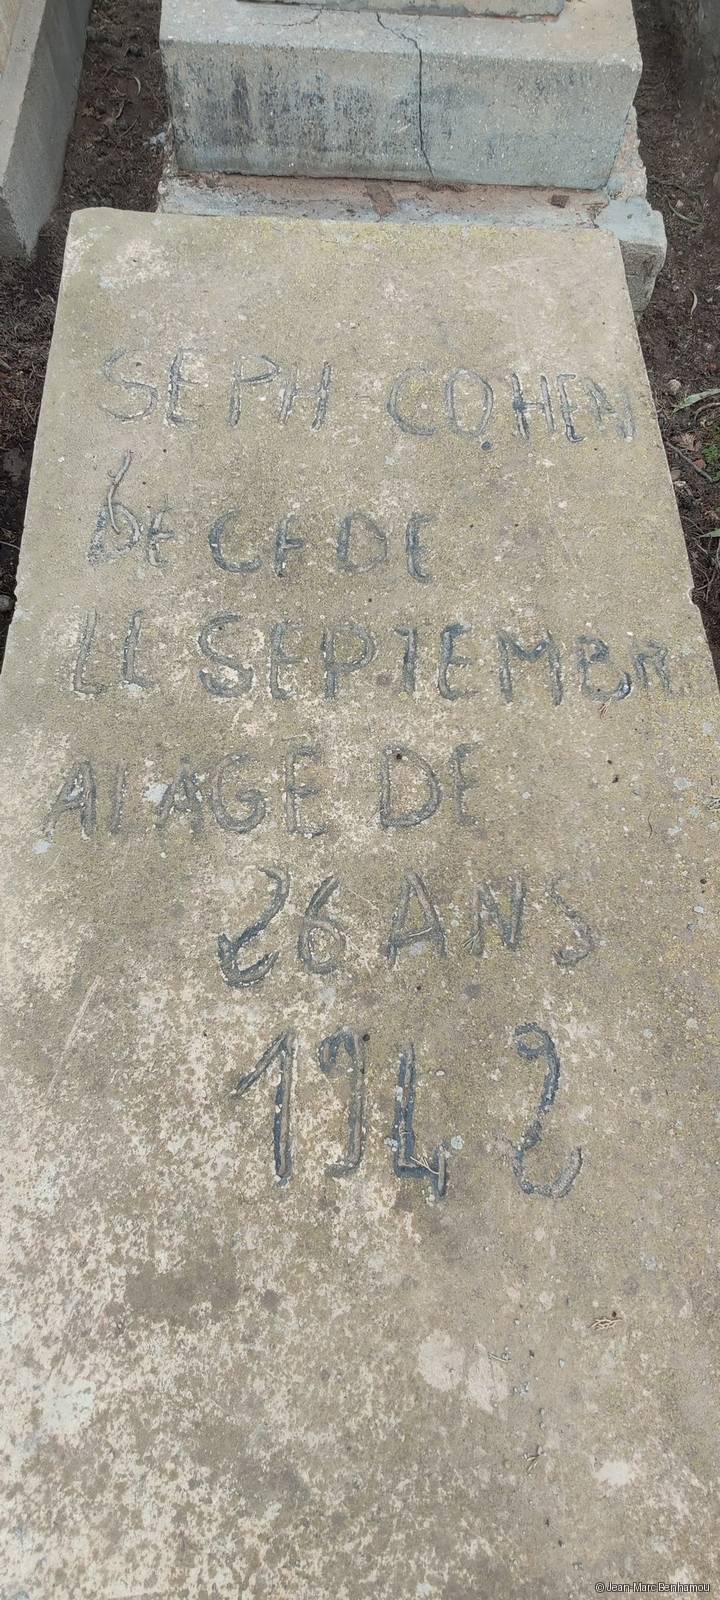 SEPH COHEN
DECEDE
LE SEPTEMBR
ALAGE DE
26 ANS
1942
© Jean-Marc Benhamou